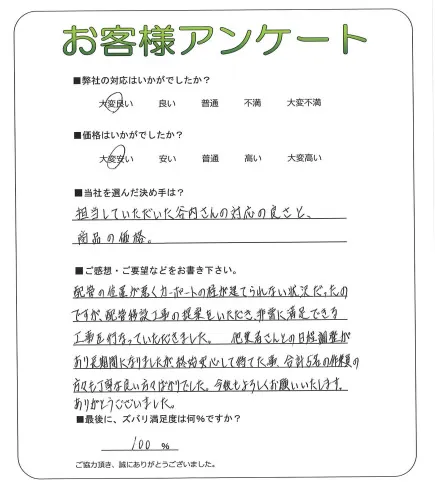 お客様アンケート
■弊社の対応はいかがでしたか?
大変良い 良い 普通 不満 大変不満
■価格はいかがでしたか?
大変安い 安い 普通 高い 大変高い
■当社を選んだ決め手は?
担当していただいた谷内さんの対応の良さと、
商品の価格。
■ご感想・ご要望などをお書き下さい。
配管の位置が悪くカーポートの柱が建てられない状況だったの
ですが、配管移設工事の提案をいただき、非常に満足できる
工事を行なっていただきました。 他業者さんとの日程調整が
あり長期間になりましたが、終始安心して待てた事、合計5名の作業員の
方々も丁寧な良い方々ばかりでした。今後もよろしくお願いいたします。
ありがとうございました。
■最後に、ズバリ満足度は何%ですか?
100 %
ご協力頂き、誠にありがとうございました。